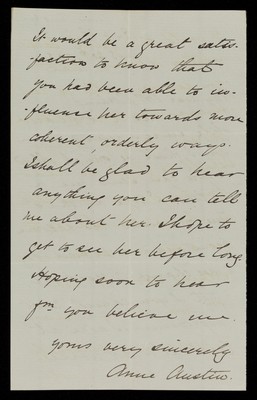 It would be a great satis-
-faction to know that
you had been able to in-
-fluence her towards more
coherent, orderly ways.
I shall be glad to hear
anything you can tell
me about her. I hope to
get to see her before long.
Hoping soon to hear
fm you believe me.
yours very sincerely
Anne Austin.